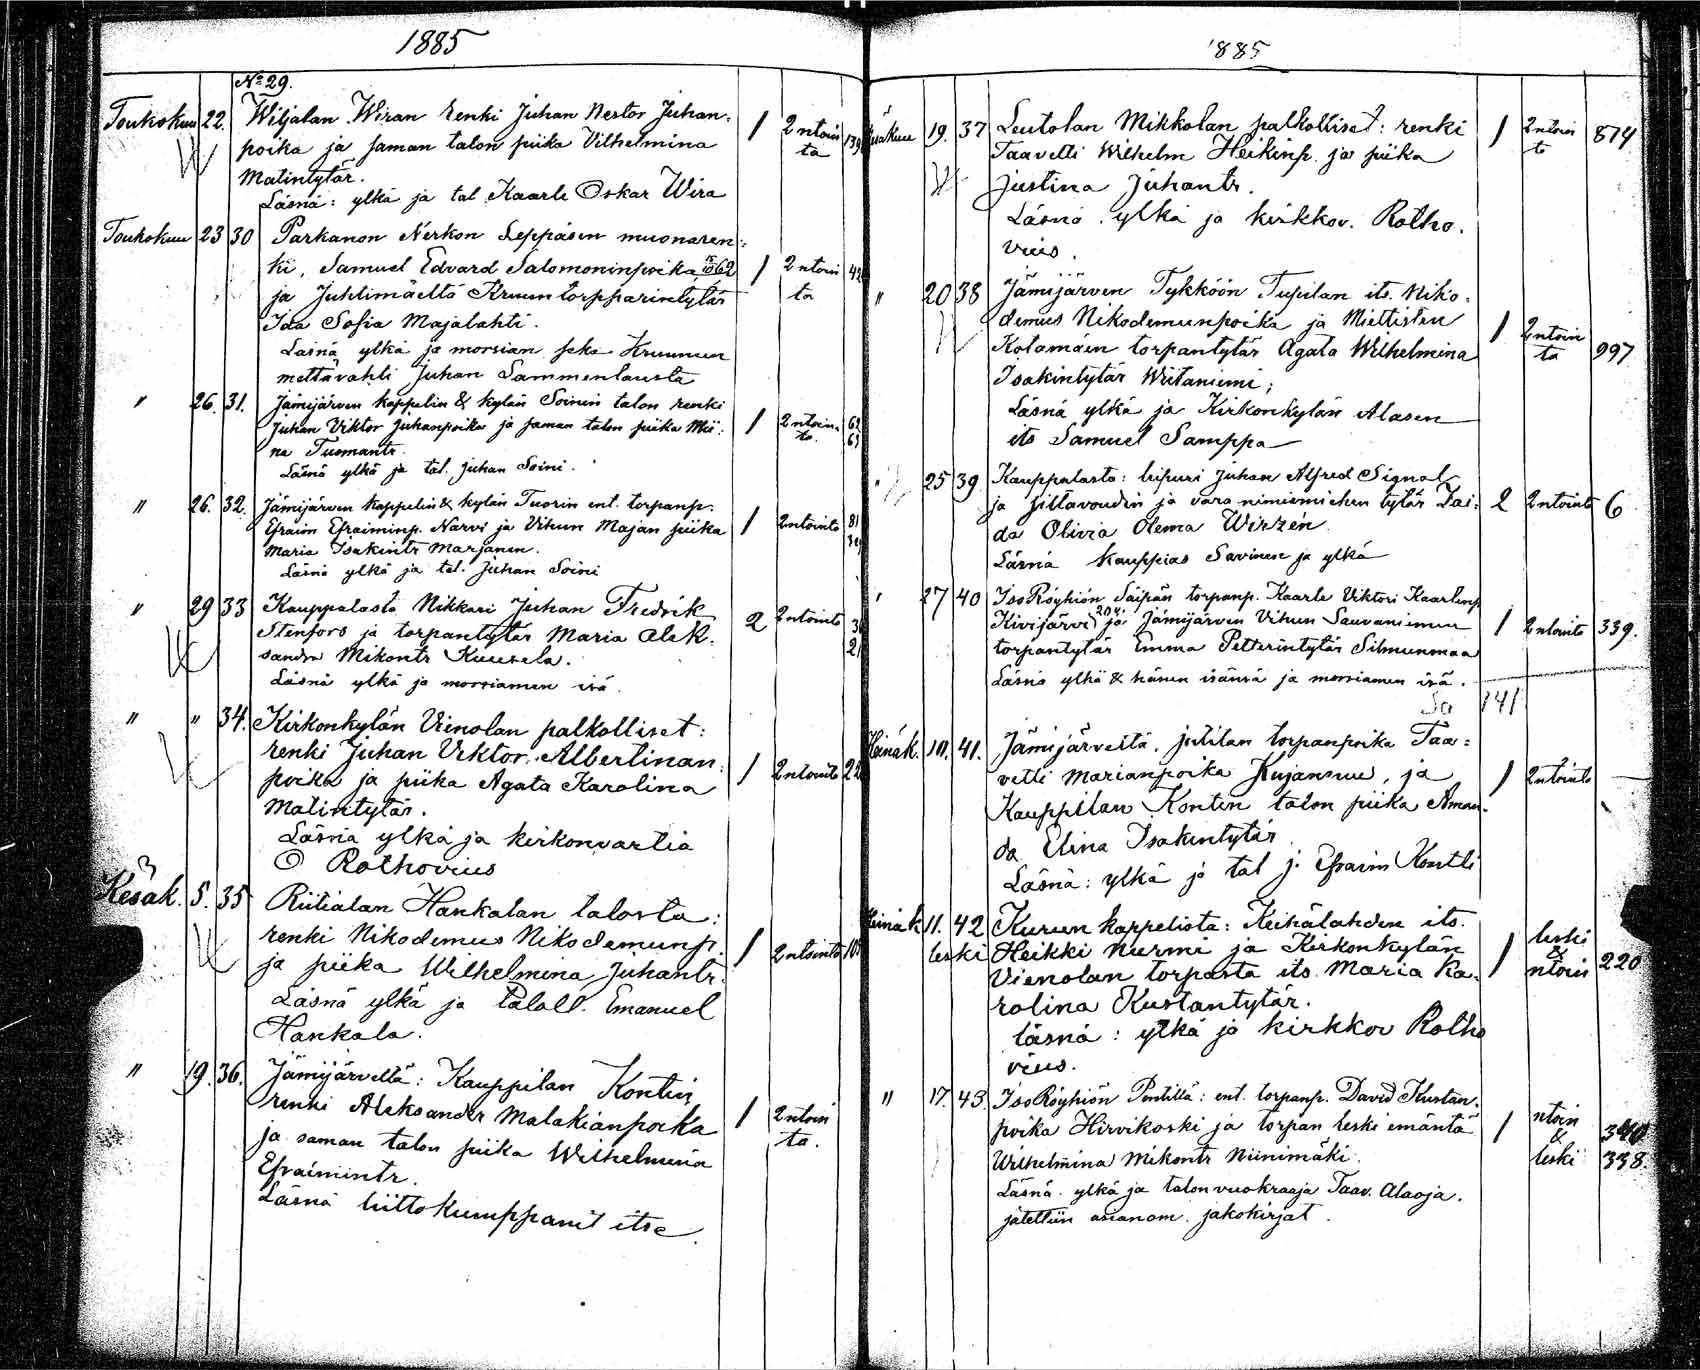 1885
No 29.
Toukokuu 22. Wiljalan Wiran renki Juhan Nestor Juhan= 1 2 ntoin 139
poika ja saman talon piika Vilhelmina ta
Matintytär.
Läsnä: ylkä ja tal. Kaarle Oskar Wira
Toukokuu 23 30 Parkanon Nerkon Leppäsen muonaren=
ki, Samuel Edvard Salomoninpoika 62 1 2 ntoin 42
ja Juhtimäeltä Kruun torpparintytär ta
Ida Sofia Majalahti.
Läsnä ylkä ja morsian seka Kruunun
mettävahti Juhan Sammenlausta
" 26. 31. Jämijärven kappelin & kylän Soinin talon renki
Juhan Viktor Juhanpoika ja saman talon piika Mii= 1 2 ntoin= 62
na Tuomantr. ta.
Läsnä ylkä ja tal. Juhan Soini.
" 26. 32. Jämijärven kappelin & kylän Tuorin ent. torpanp.
Efraim Efraiminp. Narvi ja Vihun Majan piika 1 2 ntointa 81
Maria Isakintr Marjanen.
Läsnä ylkä ja tal. Juhan Soini
" 29 33 Kauppalasta Nikkari Juhan Fredrik 2 2 ntointa
Stenfors ja torpantytär Maria Alek= 21
sandra Mikontr Kuusela.
Läsnä ylkä ja morsiamen isä.
" " 34. Kirkonkylän Vienolan palkolliset:
renki Juhan Viktor Albertinan= 1 2 ntointa 22
poika ja piika Agata Karolina
Matintytär.
Läsnä ylkä ja kirkonvartia
O Rothovius
Kesäk. 5. 35 Riitialan Hankalan talosta:
renki Nikodemus Nikodemunp. 1 2 ntointa
ja piika Wilhelmina Juhantr.
Läsnä ylkä ja taloll. Emanuel
Hankala.
" 19. 36. Jämijärveltä: Kauppilan Kontin
renki Aleksander Malakianpoika 1 2 ntoin
ja saman talon piika Wilhelmina ta.
Efraimintr.
Läsnä liittokumppanit itse.
1885
Kesäkuu 19. 37 Leutolan Mikkolan palkolliset: renki 1 2 ntoin 874
Taavetti Wilhelm Heikinp. ja piika ta
Justina Juhantr.
Läsnä ylkä ja kirkkov. Rotho=
vius.
" 20 38 Jämijärven Tykköön Tupilan its. Niko=
demus Nikodemunpoika ja Miettisten 1 2 ntoin
Kotamäen torpantytär Agata Wilhelmina ta 997
Isakintytär Wiitaniemi;
Läsnä ylkä ja Kirkonkylän Alasen
its Samuel Samppa
" 25 39 Kauppalasta: leipuri Juhan Alfred Signal
ja siltavoudin ja vara nimismiehen tytär Zai= 2 2 ntointa 6
da Olivia Olema Wirzén.
Läsnä kauppias Savinen ja ylkä
" 27 40 IsoRöyhiön Saipän torpanp. Kaarle Viktori Kaarlenp
Kivijärvi ja Jämijärven Vihun Sauvaniemen 1 2 ntointa 339.
torpantytär Emma Petterintytär Silmunmaa
Läsnä ylkä & hänen isänsä ja morsiamen isä.
Sa 141
Heinäk. 10. 41. Jämijärveltä, Jutilan torpanpoika Taa=
vetti Marianpoika Kujansuu, ja 1 2 ntointa
Kauppilan Kontin talon piika Aman=
da Elina Isakintytär
Läsnä: ylkä ja tal j. Efraim Kontti
Heinäk 11. 42 Kurun kappelista: Keihälahden its.
leski Heikki Nurmi ja Kirkonkylän 1 leski & ntoin 220
Vienolan torpasta its. Maria Ka=
rolina Kustantytär.
läsnä: ylkä ja kirkkov Rotho
vius.
" 17. 43. IsoRöyhiön Pentillä: ent. torpanp. David Kustan=
poika Hirvikoski ja torpan leski emäntä 1 ntoin & leski 340 338.
Wilhelmina Mikontr Niinimäki.
Läsnä. ylkä ja talon vuokraaja Taav. Alaoja.
jätettiin asianom. jakokirjat.